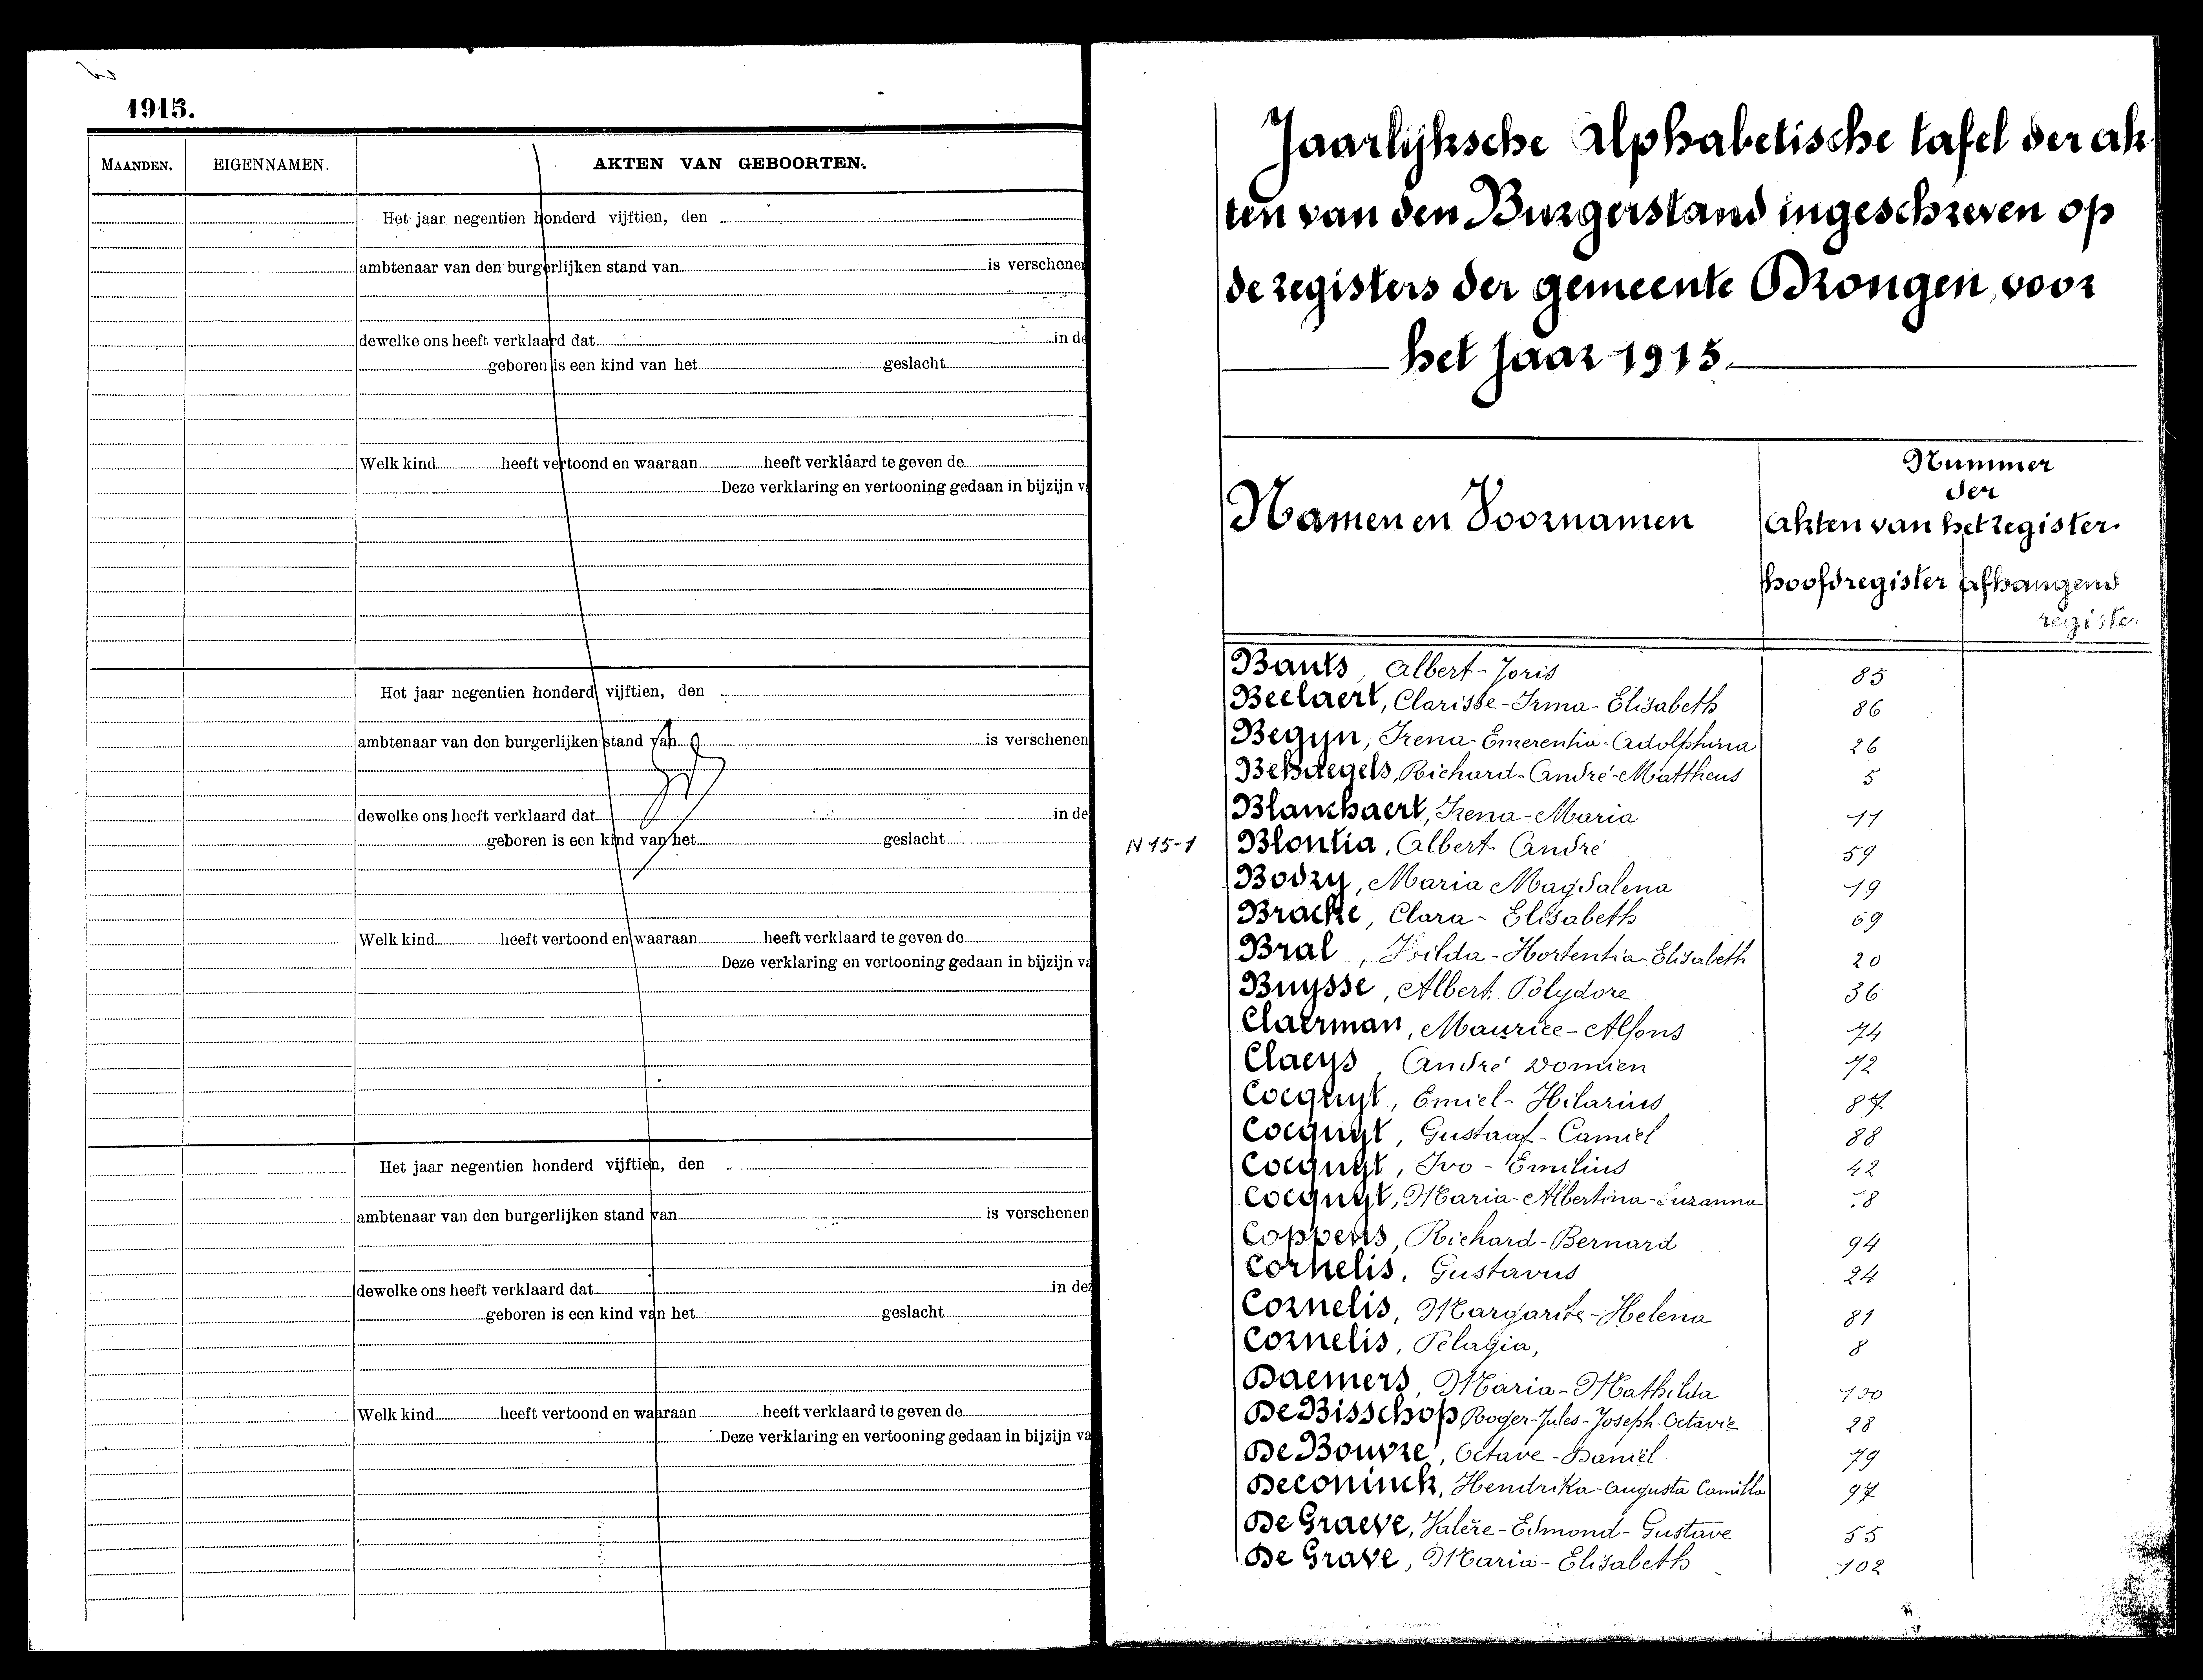 1915.
MAANDEN.
EIGENNAMEN.
AKTEN VAN GEBOORTEN.
Het jaar negentien honderd vijftien, den
ambtenaar van den burgerlijken stand van is verschenen
dewelke ons heeft verklaard dat in de
geboren is een kind van het geslacht
Welk kind heeft vertoond en waaraan heeft verklaard te geven de
Deze verklaring en vertooning gedaan in bijzijn v
Het jaar negentien honderd vijftien, den
ambtenaar van den burgerlijken stand van is verschenen
dewelke ons heeft verklaard dat in de
geboren is een kind van het geslacht
Welk kind heeft vertoond en waaraan heeft verklaard te geven de
Deze verklaring en vertooning gedaan in bijzijn va
Het jaar negentien honderd vijftien, den
ambtenaar van den burgerlijken stand van is verschenen
dewelke ons heeft verklaard dat in dez
geboren is een kind van het geslacht
Welk kind heeft vertoond en waaraan heeft verklaard te geven de
Deze verklaring en vertooning gedaan in bijzijn va
Jaarlijksche Alphabetische tafel der ak-
ten van den Burgerstand ingeschreven op
de registers der gemeente Drongen voor
het Jaar 1915.
Namen en Voornamen
Nummer
der
Akten van het register
hoofdregister afhangend
register
Bauts, Albert-Joris 85
Beelaert, Clarisse-Irma-Elisabeth 86
Begyn, Irena-Emerentia-Adolphina 26
Behaegels, Richard-André-Mattheus 5
Blanchaert, Irena-Maria 11
N 15-1 Blontia, Albert André 59
Bodry, Maria Magdalena 19
Bracke, Clara-Elisabeth 69
Bral, Hilda-Hortentia-Elisabeth 20
Buysse, Albert Polydore 36
Claerman, Maurice-Alfons 74
Claeys, André Domien 72
Cocquyt, Emiel-Hilarius 87
Cocquyt, Gustaaf-Camiel 88
Cocquyt, Ivo-Emilius 42
Cocquyt, Maria-Albertina-Suzanna 8
Coppens, Richard-Bernard 94
Cornelis, Gustavus 24
Cornelis, Margarite-Helena 81
Cornelis, Pelagia, 8
Daemers, Maria-Mathilda 100
De Bisschop Roger-Jules-Joseph-Octavie 28
De Bouvre, Octave-Daniël 79
Deconinck, Hendrika-Augusta Camilla 97
De Graeve, Valère-Edmond-Gustave 55
De Grave, Maria-Elisabeth 102